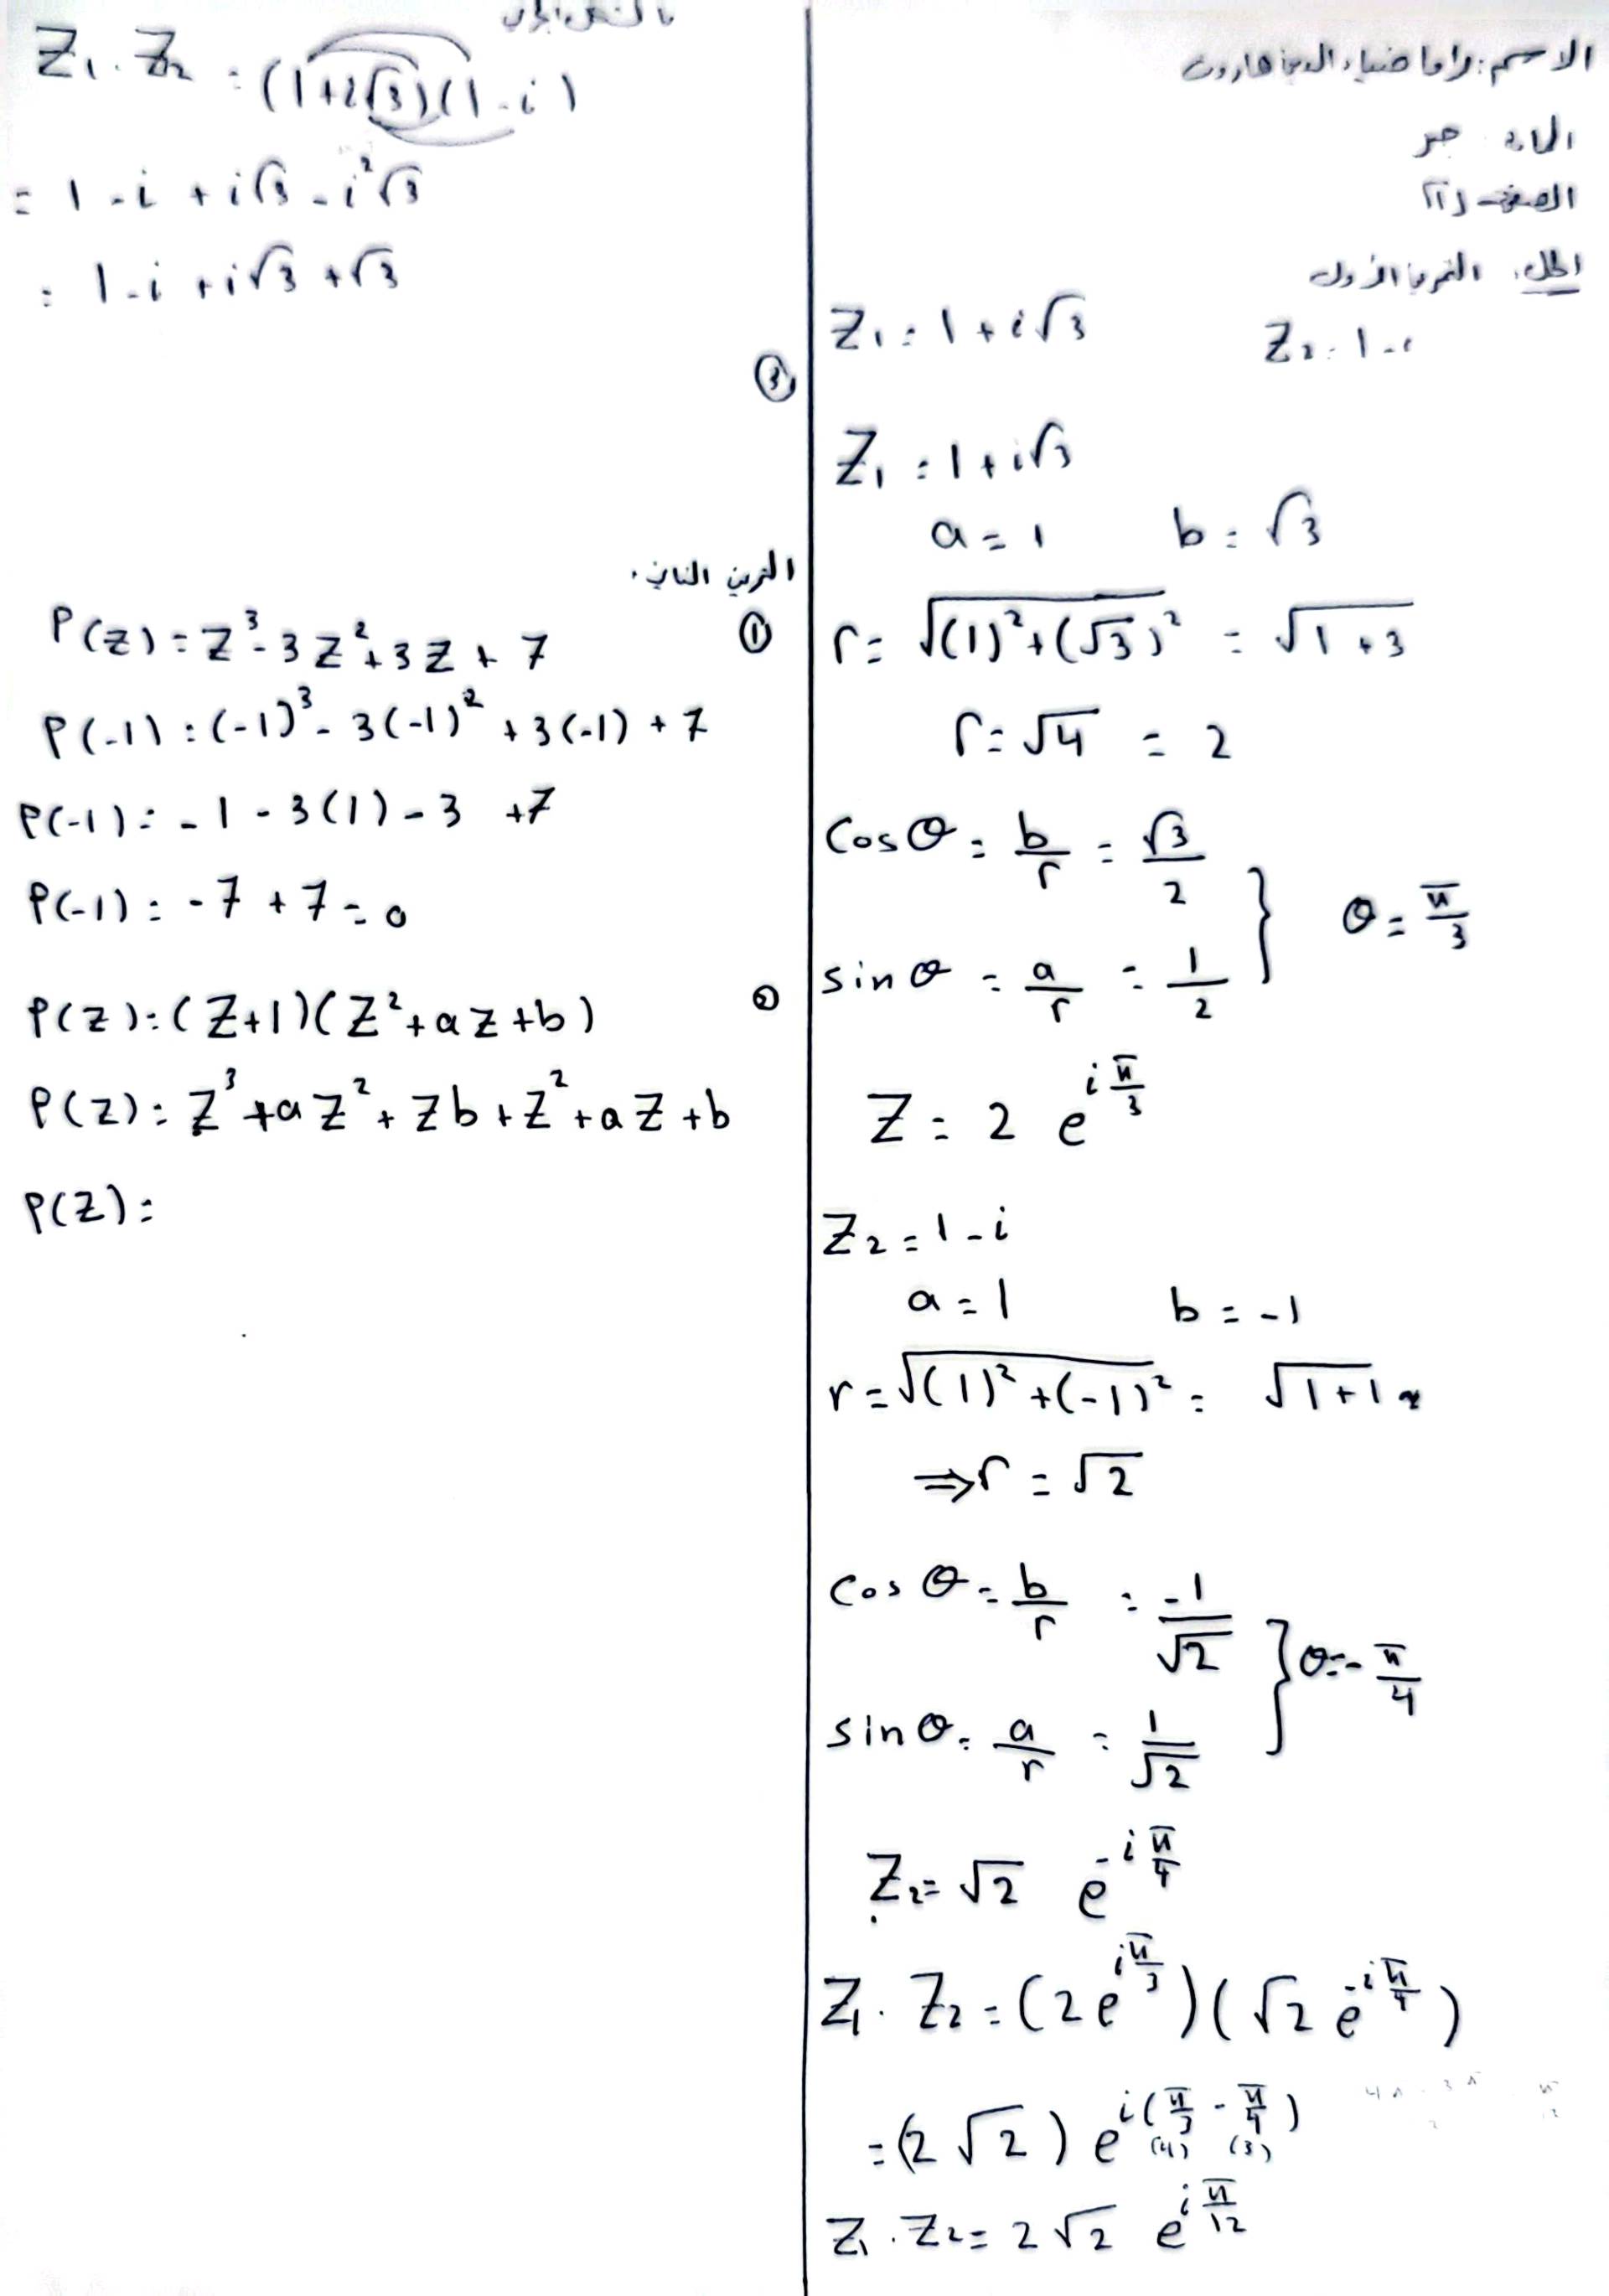 الاسم: راما ضياء الدين هارون
المادة جبر
الصفحة
الحل: التمرين الأول
Z₁ = 1 + i√3    Z₂ = 1 - i
Z₁ = 1 + i√3
a = 1    b = √3
r = √((1)² + (√3)²) = √(1 + 3)
r = √4 = 2
cos θ = b/r = √3/2
sin θ = a/r = 1/2 } θ = π/3
Z = 2 e^(i π/3)
Z₂ = 1 - i
a = 1    b = -1
r = √((1)² + (-1)²) = √(1+1)
⇒ r = √2
cos θ = b/r = -1/√2
sin θ = a/r = 1/√2 } θ = - π/4
Z₂ = √2 e^(-i π/4)
Z₁ . Z₂ = (2 e^(i π/3)) (√2 e^(-i π/4))
= (2 √2) e^(i(π/3 - π/4))
(4) (3)
Z₁ . Z₂ = 2 √2 e^(i π/12)
Z₁ . Z₂ = (1 + i√3)(1 - i)
= 1 - i + i√3 - i²√3
= 1 - i + i√3 + √3
③
التمرين الثاني:
① P(Z) = Z³ - 3Z² + 3Z + 7
P(-1) = (-1)³ - 3(-1)² + 3(-1) + 7
P(-1) = -1 - 3(1) - 3 + 7
P(-1) = -7 + 7 = 0
② P(Z) = (Z+1)(Z² + aZ + b)
P(Z) = Z³ + aZ² + Zb + Z² + aZ + b
P(Z) =